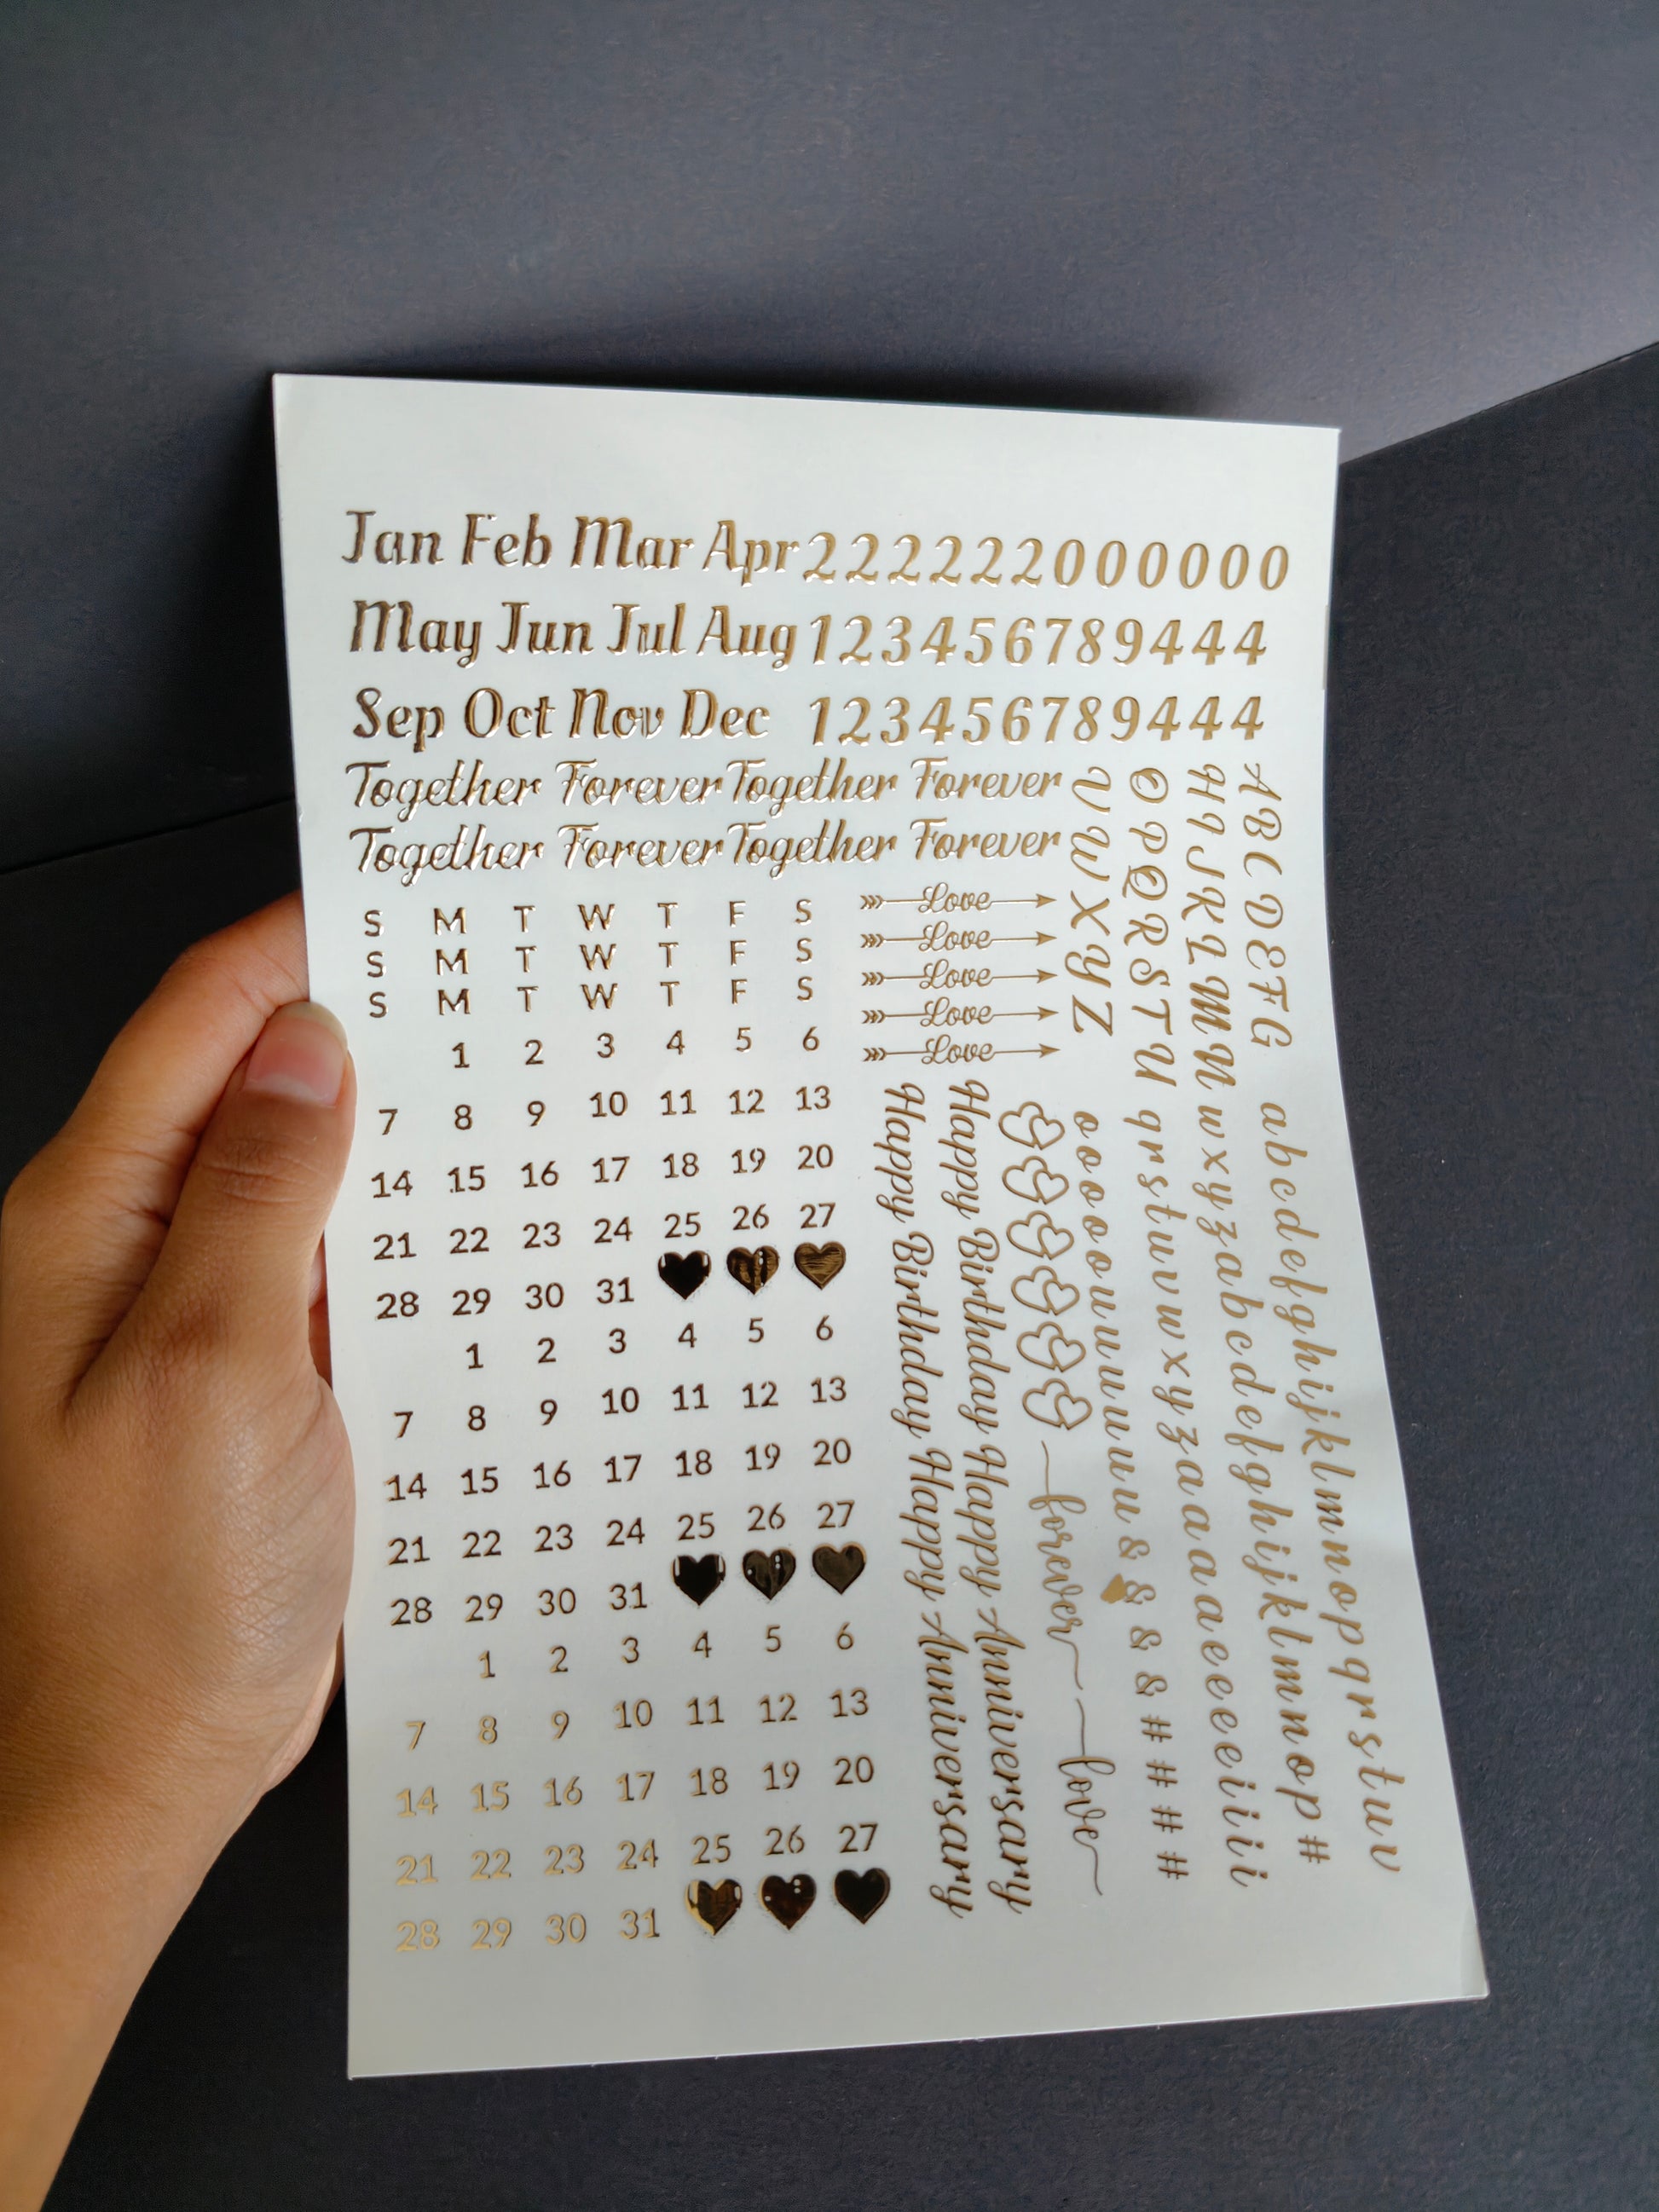 Jan Feb Mar Apr 2222220000000
May Jun Jul Aug 123456789444
Sep Oct Nov Dec 123456789444
Together Forever Together Forever
Together Forever Together Forever
S M T W T F S
S M T W T F S
S M T W T F S
1 2 3 4 5 6
7 8 9 10 11 12 13
14 15 16 17 18 19 20
21 22 23 24 25 26 27
28 29 30 31
1 2 3 4 5 6
7 8 9 10 11 12 13
14 15 16 17 18 19 20
21 22 23 24 25 26 27
28 29 30 31
1 2 3 4 5 6
7 8 9 10 11 12 13
14 15 16 17 18 19 20
21 22 23 24 25 26 27
28 29 30 31
Love
Love
Love
Love
Love
A B C D E F G
H I J K L M N
O P Q R S T U
V W X Y Z
a b c d e f g h i j k l m n o p q r s t u v
w x y z a b c d e f g h i j k l m n o p #
q r s t u v w x y z a a a a a a e e e e e i i i i
o o o o o u u u u u u & & & & # # # # #
forever love
Happy Birthday Happy Anniversary
Happy Birthday Happy Anniversary